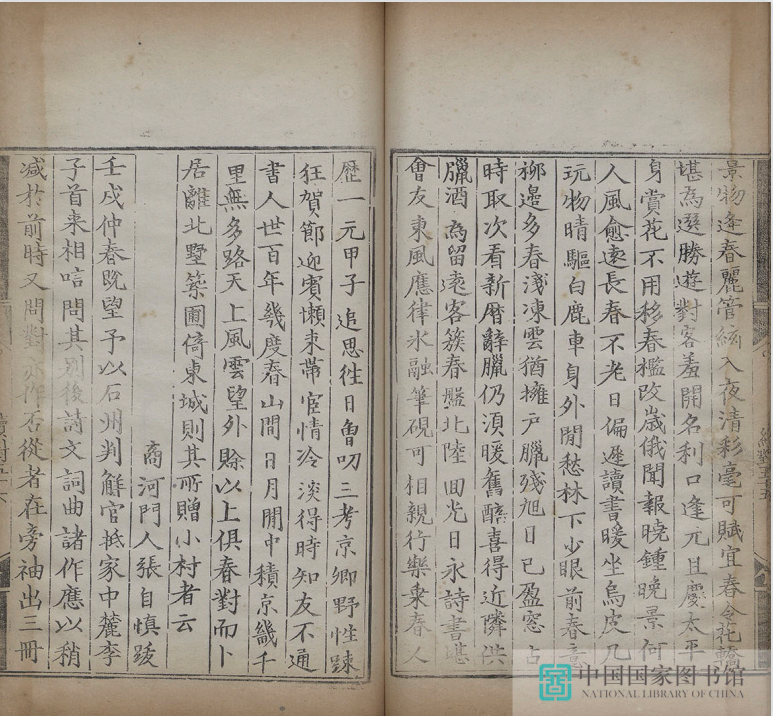 景物逢春麗管絃入夜清彩毫可賦宜春令花轎
堪為選勝遊對客羞開名利口逢元且慶太平
身賞花不用移春檻改歲俄聞報曉鍾晚景何
人風愈遠長春不老日偏遲讀書暖坐烏皮几
玩物晴驅白鹿車身外閒愁林下少眼前春意
柳邊多春淺凍雲猶擁戶臘殘旭日已盈窓占
時取次看新曆辭臘仍須暖舊醅喜得近隣供
臘酒為留遠客簇春盤北陸回光日永詩書堪
會友東風應律氷融筆硯可相親行樂乗春人
歷一元甲子追思徃日曾叨三考京卿野性踈
狂賀節迎賓懶束帶宦情冷淡得時知友不通
書人世百年幾度春山間日月閒中積京畿千
里無多路天上風雲望外賒以上俱春對而卜
居離北墅築圃倚東城則其所贈小村者云
商河門人張自慎跋
壬戌仲春既望予以石州判觧官抵家中麓李
子首来相唁問其別後詩文詞曲諸作應以稍
减於前時又問對亦作否從者在旁袖出三冊
中国国家图书馆
NATIONAL LIBRARY OF CHINA